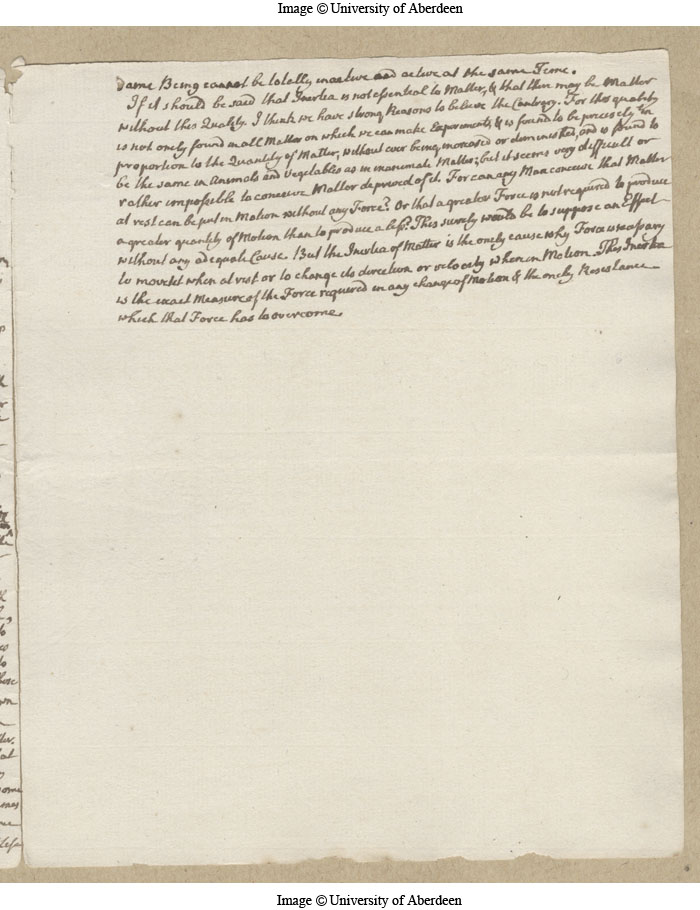 Image © University of Aberdeen
same Being cannot be totally inactive and active at the same Time.
If it should be said that Inertia is not essential to Matter, & that there may be Matter
without this Quality. I think we have strong Reasons to believe the Contrary. For this quality
is not onely found in all Matter on which we can make Experiments, & is found to be precisely in
proportion to the Quantity of Matter, without ever being increased or diminished, and is found to
be the same in Animals and Vegetables as in inanimate Matter; but it seems very difficult or
rather impossible to conceive Matter deprived of it. For can any Man conceive that Matter
at rest can be put in Motion without any Force? Or that a greater Force is not required to produce
a greater quantity of Motion than to produce a less? This surely would be to suppose an Effect
without any adequate Cause. But the Inertia of Matter is the onely cause why Force is necessary
to move it when at rest or to change its direction or velocity when in Motion. This Inertia
is the exact Measure of the Force required in any change of Motion & the onely Resistance
which that Force has to overcome.
Image © University of Aberdeen